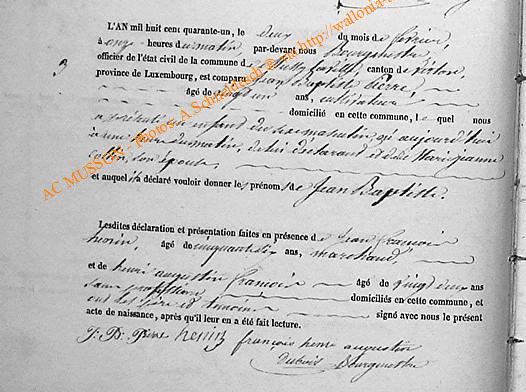 L'AN mil huit cent quarante-un, le deux du mois de février,
à onze heures du matin par-devant nous Bourgmestre
officier de l'état civil de la commune de canton de Virton
province de Luxembourg, est comparu Jean Baptiste Pierre,
âgé de vingt un ans, cultivateur
domicilié en cette commune, lequel nous
a présenté un enfant du sexe masculin, né aujourd'hui
à une heure du matin, de lui déclarant et de Marie jeanne
collin, son épouse,
et auquel il a déclaré vouloir donner le prénom de Jean Baptiste.
Lesdites déclaration et présentation faites en présence de Jean françois
henin, âgé de cinquante six ans, marchand,
et de henri augustin françois âgé de vingt deux ans
sans profession domiciliés en cette commune, et
ont les père et témoins signé avec nous le présent
acte de naissance, après qu'il leur en a été fait lecture.
J: B: Pierre henin françois henri augustin
Dubois Bourgmestre
AC MUSSON - photos: A.Schmidtsch © sur http://wallonia